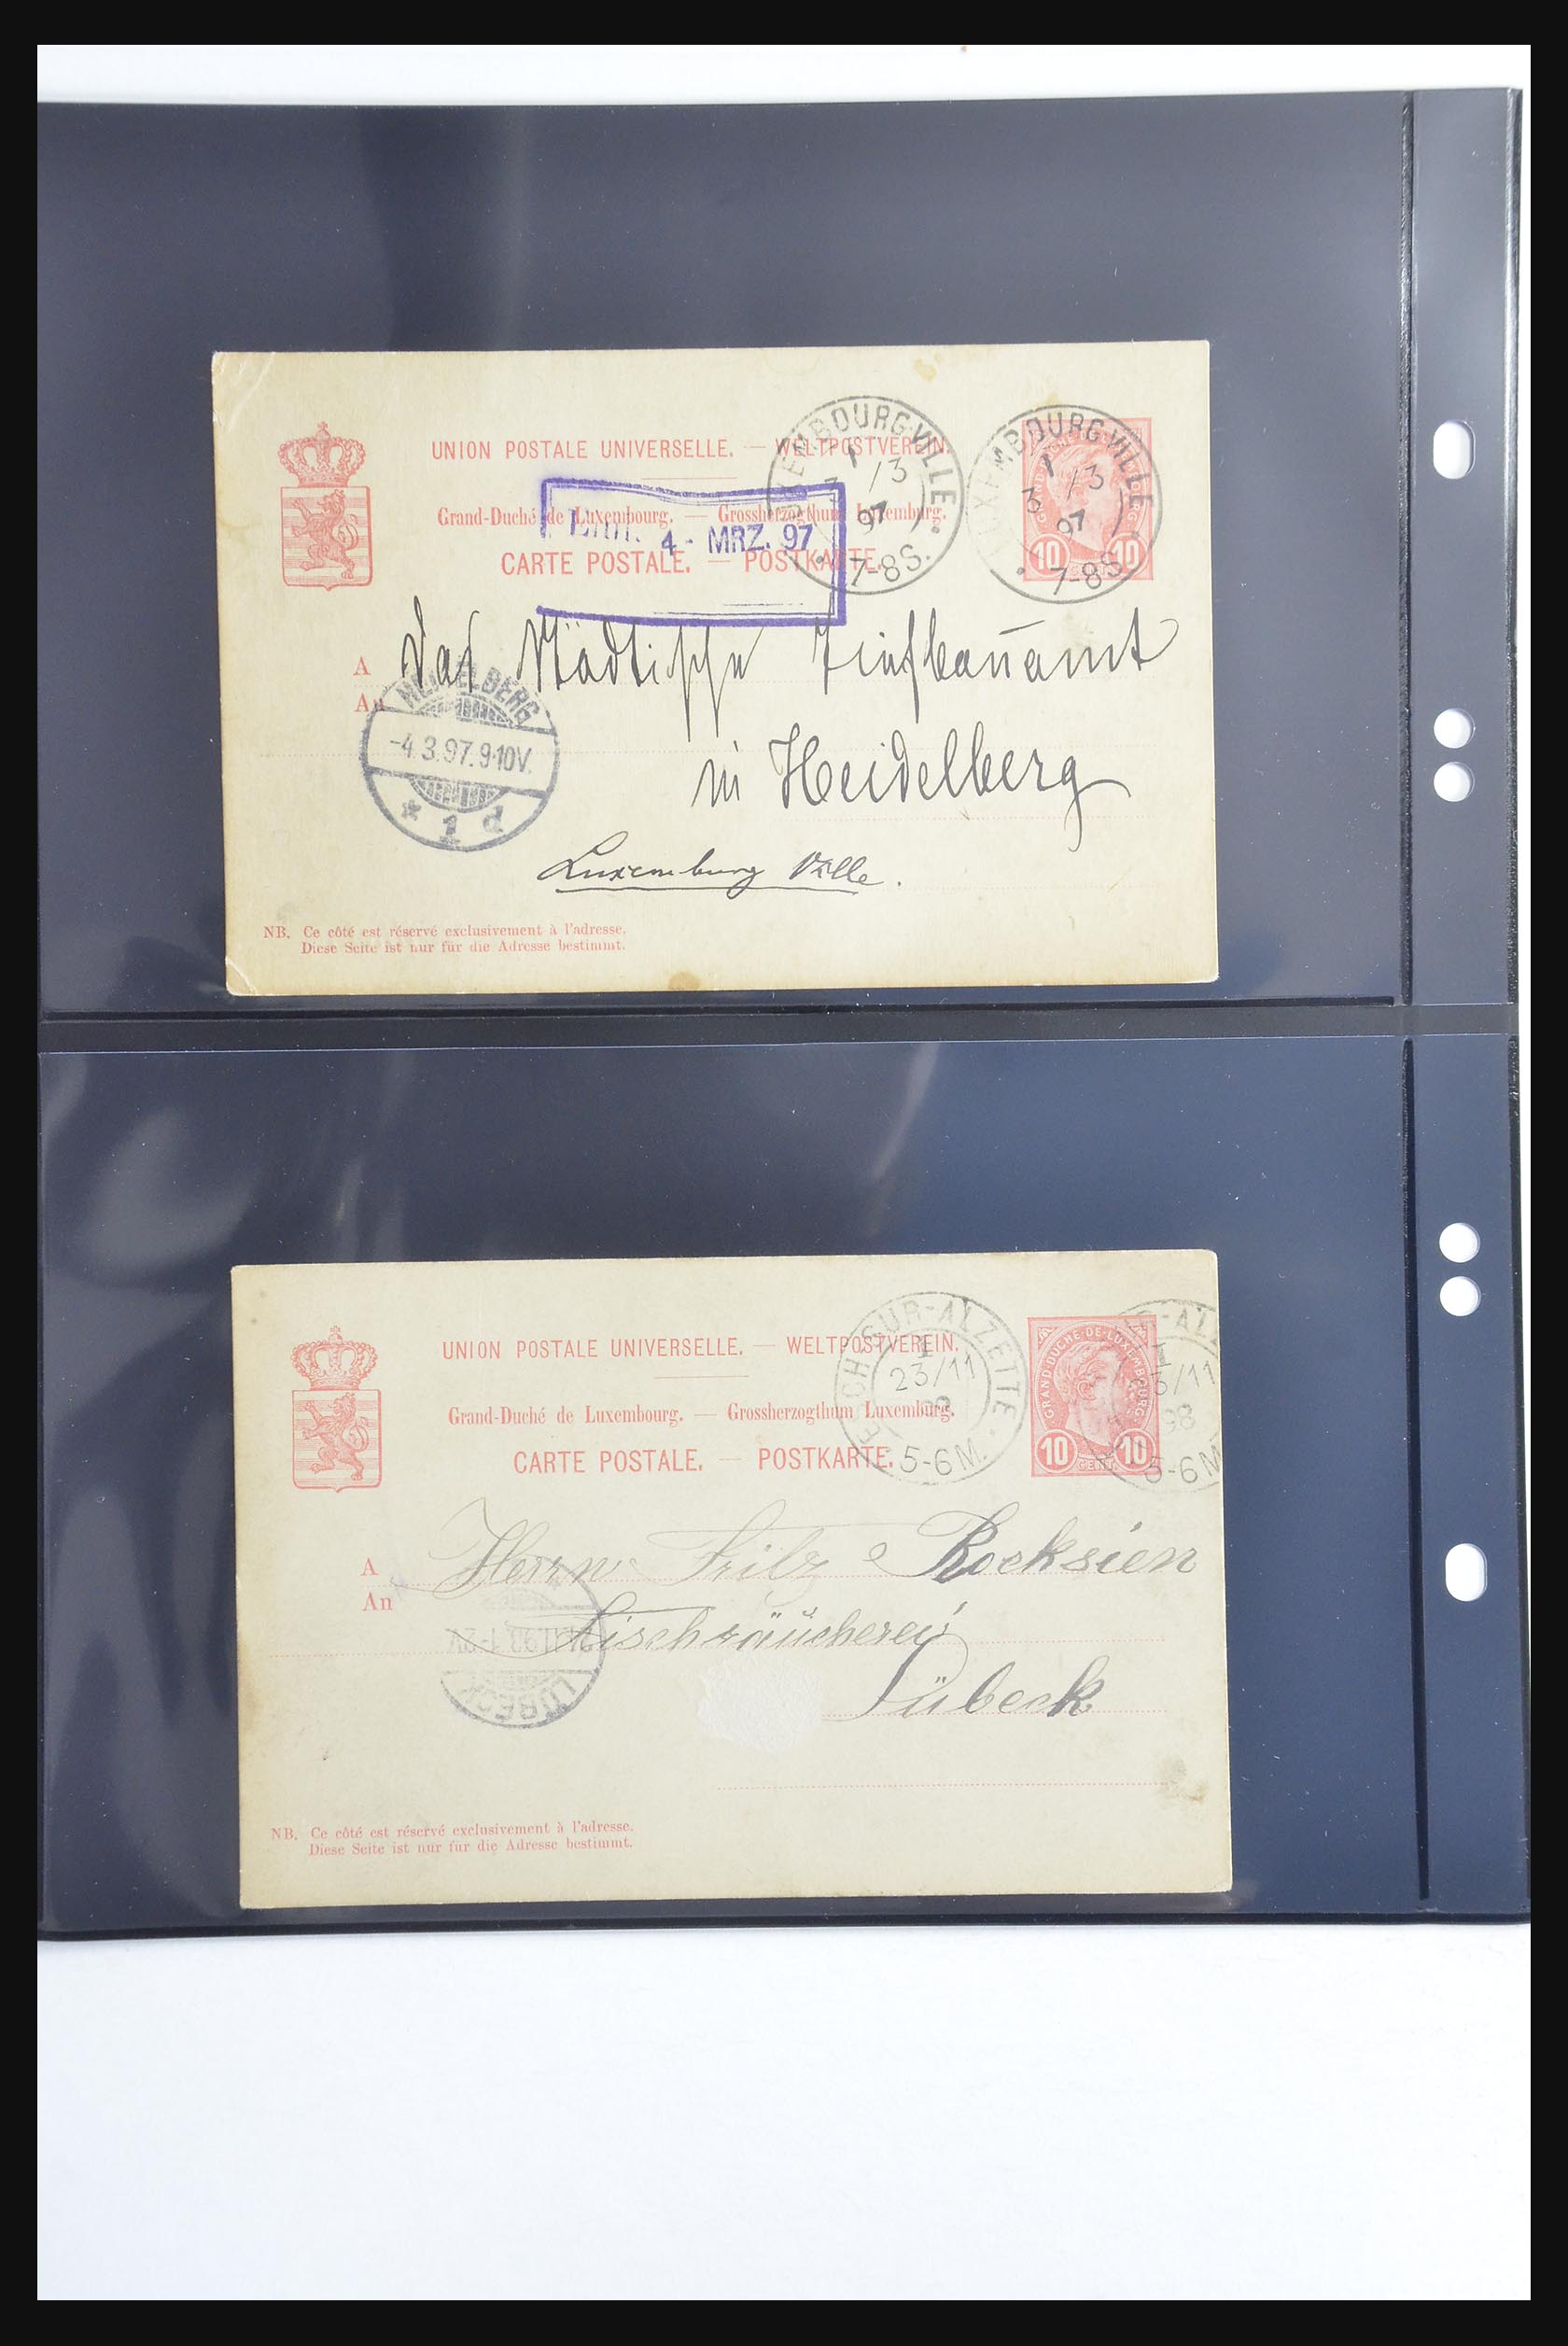 UNION POSTALE UNIVERSELLE. — WELTPOSTVEREIN.
Grand-Duché de Luxembourg. — Grossherzogthum Luxemburg.
CARTE POSTALE. — POSTKARTE.
LUXEMBOURG-VILLE
1
3/3
97
7-8S.
LUXEMBOURG-VILLE
1
3/3
97
7-8S.
GRAND DUCHÉ DE LUXEMBOURG
10 10
4 - MRZ. 97
A Das Städtische Tiefbauamt
An
in Heidelberg
HEIDELBERG
-4.3.97.9-10V.
* 1 d
Luxemburg Ville.
NB. Ce côté est réservé exclusivement à l'adresse.
Diese Seite ist nur für die Adresse bestimmt.
UNION POSTALE UNIVERSELLE. — WELTPOSTVEREIN.
Grand-Duché de Luxembourg. — Grossherzogthum Luxemburg.
CARTE POSTALE. — POSTKARTE.
ESCH-SUR-ALZETTE
1
23/11
5-6M.
GRAND DUCHÉ DE LUXEMBOURG
10 CENT. 10
3/11
98
5-6M
A Herrn Fritz Rocksien
An
Fischräucherei
Lübeck
LÜBECK
NB. Ce côté est réservé exclusivement à l'adresse.
Diese Seite ist nur für die Adresse bestimmt.